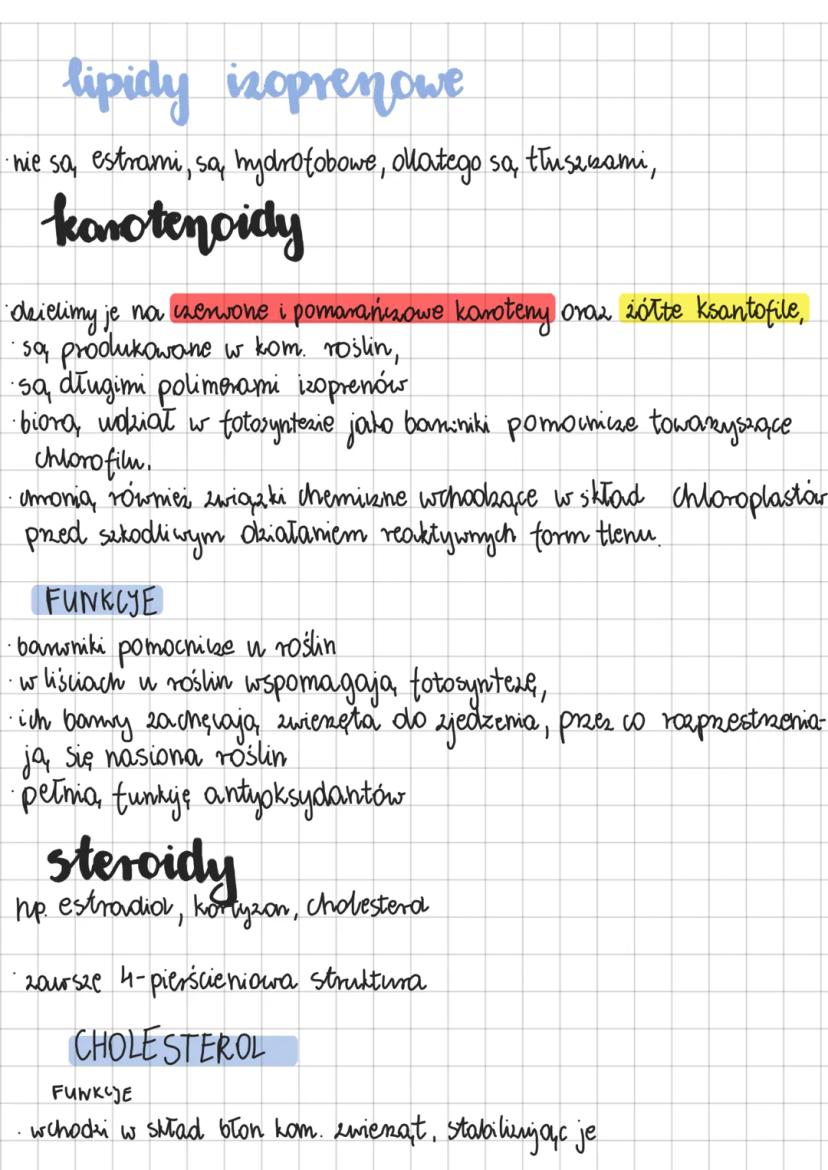 lipidy izoprenowe
· nie są estrami, są hydrofobowe, dlatego są tłuszczami,
karotenoidy
· dzielimy je na czerwone i pomarańczowe karoteny oraz żółte ksantofile,
· są produkowane w kom. roślin,
· są długimi polimerami izoprenów
· biorą udział w fotosyntezie jako barwniki pomocnicze towarzyszące
chlorofilu.
· chronią również związki chemiczne wchodzące w skład chloroplastów
przed szkodliwym działaniem reaktywnych form tlenu.
FUNKCJE
· barwniki pomocnicze u roślin
· w liściach u roślin wspomagają fotosyntezę,
· ich barwy zachęcają zwierzęta do zjedzenia, przez co rozprzestrzenia-
ją się nasiona roślin
· pełnią funkcję antyoksydantów
steroidy
np. estradiol, kortyzon, cholesterol
· zawsze 4-pierścieniowa struktura
CHOLESTEROL
FUNKCJE
· wchodzi w skład błon kom. zwierząt, stabilizując je